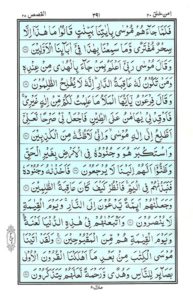 امن خلق ٢٠ ٣٩١ القصص ٢٨
فَلَمَّا جَآءَهُمْ مُّوْسٰى بِاٰيٰتِنَا بَيِّنٰتٍ قَالُوْا مَا هٰذَآ اِلَّا
سِحْرٌ مُّفْتَرًى وَّمَا سَمِعْنَا بِهٰذَا فِيْٓ اٰبَآئِنَا الْاَوَّلِيْنَ ۝
وَقَالَ مُوْسٰى رَبِّيْٓ اَعْلَمُ بِمَنْ جَآءَ بِالْهُدٰى مِنْ عِنْدِهٖ
وَمَنْ تَكُوْنُ لَهٗ عَاقِبَةُ الدَّارِ اِنَّهٗ لَا يُفْلِحُ الظّٰلِمُوْنَ ۝
وَقَالَ فِرْعَوْنُ يٰٓاَيُّهَا الْمَلَاُ مَا عَلِمْتُ لَكُمْ مِّنْ اِلٰهٍ غَيْرِيْ
فَاَوْقِدْ لِيْ يٰهَامٰنُ عَلَى الطِّيْنِ فَاجْعَلْ لِّيْ صَرْحًا لَّعَلِّيْٓ
اَطَّلِعُ اِلٰٓى اِلٰهِ مُوْسٰى وَاِنِّيْ لَاَظُنُّهٗ مِنَ الْكٰذِبِيْنَ ۝
وَاسْتَكْبَرَ هُوَ وَجُنُوْدُهٗ فِى الْاَرْضِ بِغَيْرِ الْحَقِّ
وَظَنُّوْٓا اَنَّهُمْ اِلَيْنَا لَا يُرْجَعُوْنَ ۝ فَاَخَذْنٰهُ وَجُنُوْدَهٗ
فَنَبَذْنٰهُمْ فِى الْيَمِّ فَانْظُرْ كَيْفَ كَانَ عَاقِبَةُ الظّٰلِمِيْنَ ۝
وَجَعَلْنٰهُمْ اَئِمَّةً يَّدْعُوْنَ اِلَى النَّارِ وَيَوْمَ الْقِيٰمَةِ
لَا يُنْصَرُوْنَ ۝ وَاَتْبَعْنٰهُمْ فِيْ هٰذِهِ الدُّنْيَا لَعْنَةً
وَيَوْمَ الْقِيٰمَةِ هُمْ مِّنَ الْمَقْبُوْحِيْنَ ۝ وَلَقَدْ اٰتَيْنَا
مُوْسَى الْكِتٰبَ مِنْ بَعْدِ مَآ اَهْلَكْنَا الْقُرُوْنَ الْاُوْلٰى
بَصَآئِرَ لِلنَّاسِ وَهُدًى وَّرَحْمَةً لَّعَلَّهُمْ يَتَذَكَّرُوْنَ ۝
منزل ٥